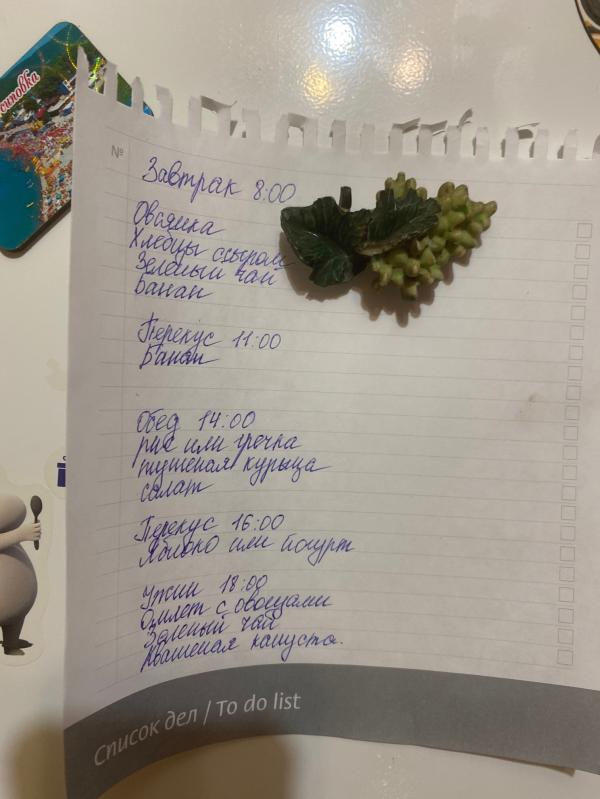 №
Завтрак 8:00
Овсянка
Хлебцы с сыром
Зелёный чай
Банан
Перекус 11:00
Банан
Обед 14:00
рис или гречка
тушеная курица
салат
Перекус 16:00
Яблоко или йогурт
Ужин 18:00
Омлет с овощами
Зеленый чай
квашеная капуста.
Список дел / To do list